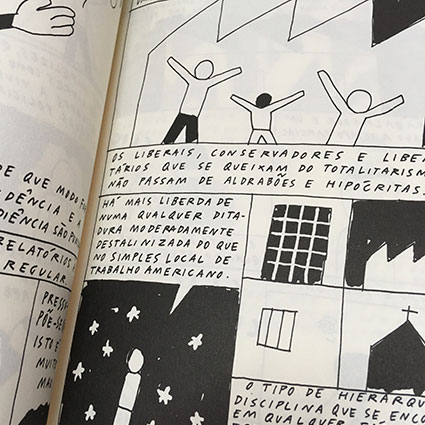 DE QUE MODO
DÊNCIA E A
DIÊNCIA SÃO
RELATÓRIOS
REGULAR
PRESSU
PÕE-SE
ISTO É
MUITO
MAI
OS LIBERAIS, CONSERVADORES E LIBER
TÁRIOS QUE SE QUEIXAM DO TOTALITARISM
NÃO PASSAM DE ALDRABÕES E HIPÓCRITAS.
HÁ MAIS LIBERDADE
NUMA QUALQUER DITA-
DURA MODERADAMENTE
DESTALINIZADA DO QUE
NO SIMPLES LOCAL DE
TRABALHO AMERICANO.
O TIPO DE HIERARQU
DISCIPLINA QUE SE ENCO
EM QUALQUER